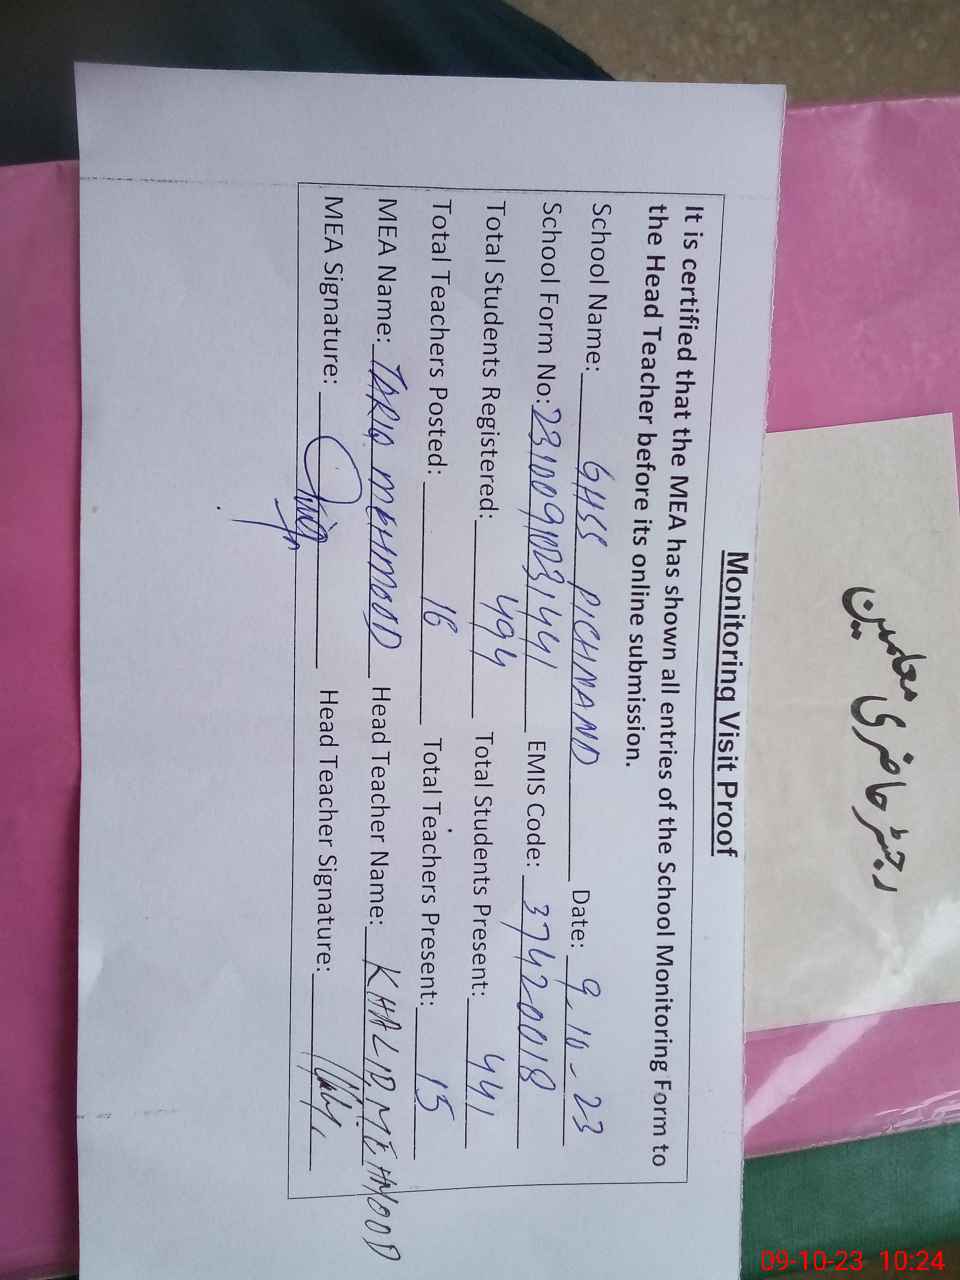 رجسٹر حاضری معلمین
Monitoring Visit Proof
It is certified that the MEA has shown all entries of the School Monitoring Form to
the Head Teacher before its online submission.
School Name: GHSS PICHNAND Date: 9.10-23
School Form No: 23100910231441 EMIS Code: 37420018
Total Students Registered: 494 Total Students Present: 441
Total Teachers Posted: 16 Total Teachers Present: 15
MEA Name: TARIQ MEHMOOD Head Teacher Name: KHALID MEHMOOD
MEA Signature: Head Teacher Signature:
09-10-23 10:24